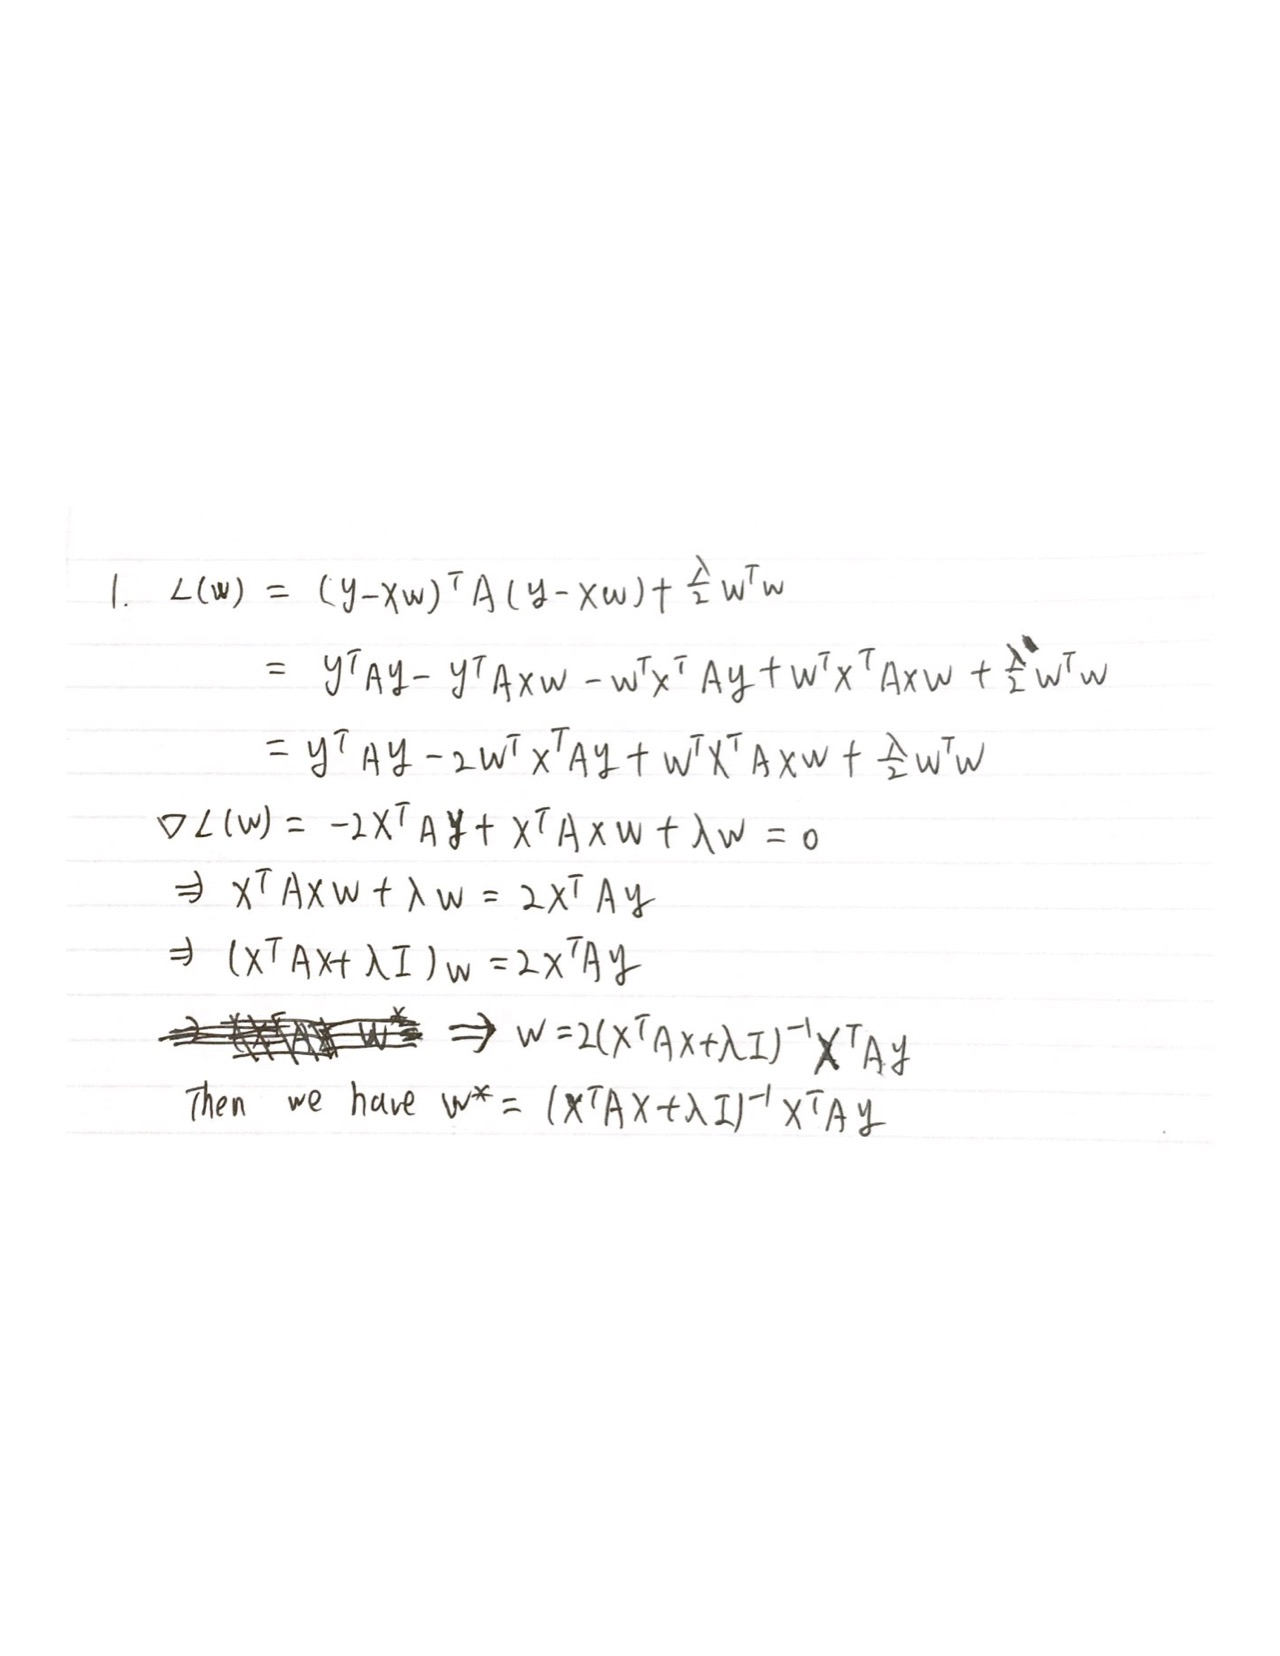 1. L(w) = (y-Xw)ᵀA(y-Xw)+ λ/2 wᵀw
= yᵀAy - yᵀAXw - wᵀXᵀAy + wᵀXᵀAXw + λ/2 wᵀw
= yᵀAy - 2wᵀXᵀAy + wᵀXᵀAXw + λ/2 wᵀw
∇L(w) = -2XᵀAy + XᵀAXw + λw = 0
⇒ XᵀAXw + λw = 2XᵀAy
⇒ (XᵀAX+λI)w = 2XᵀAy
⇒ w = 2(XᵀAX+λI)⁻¹XᵀAy
Then we have w* = (XᵀAX+λI)⁻¹XᵀAy